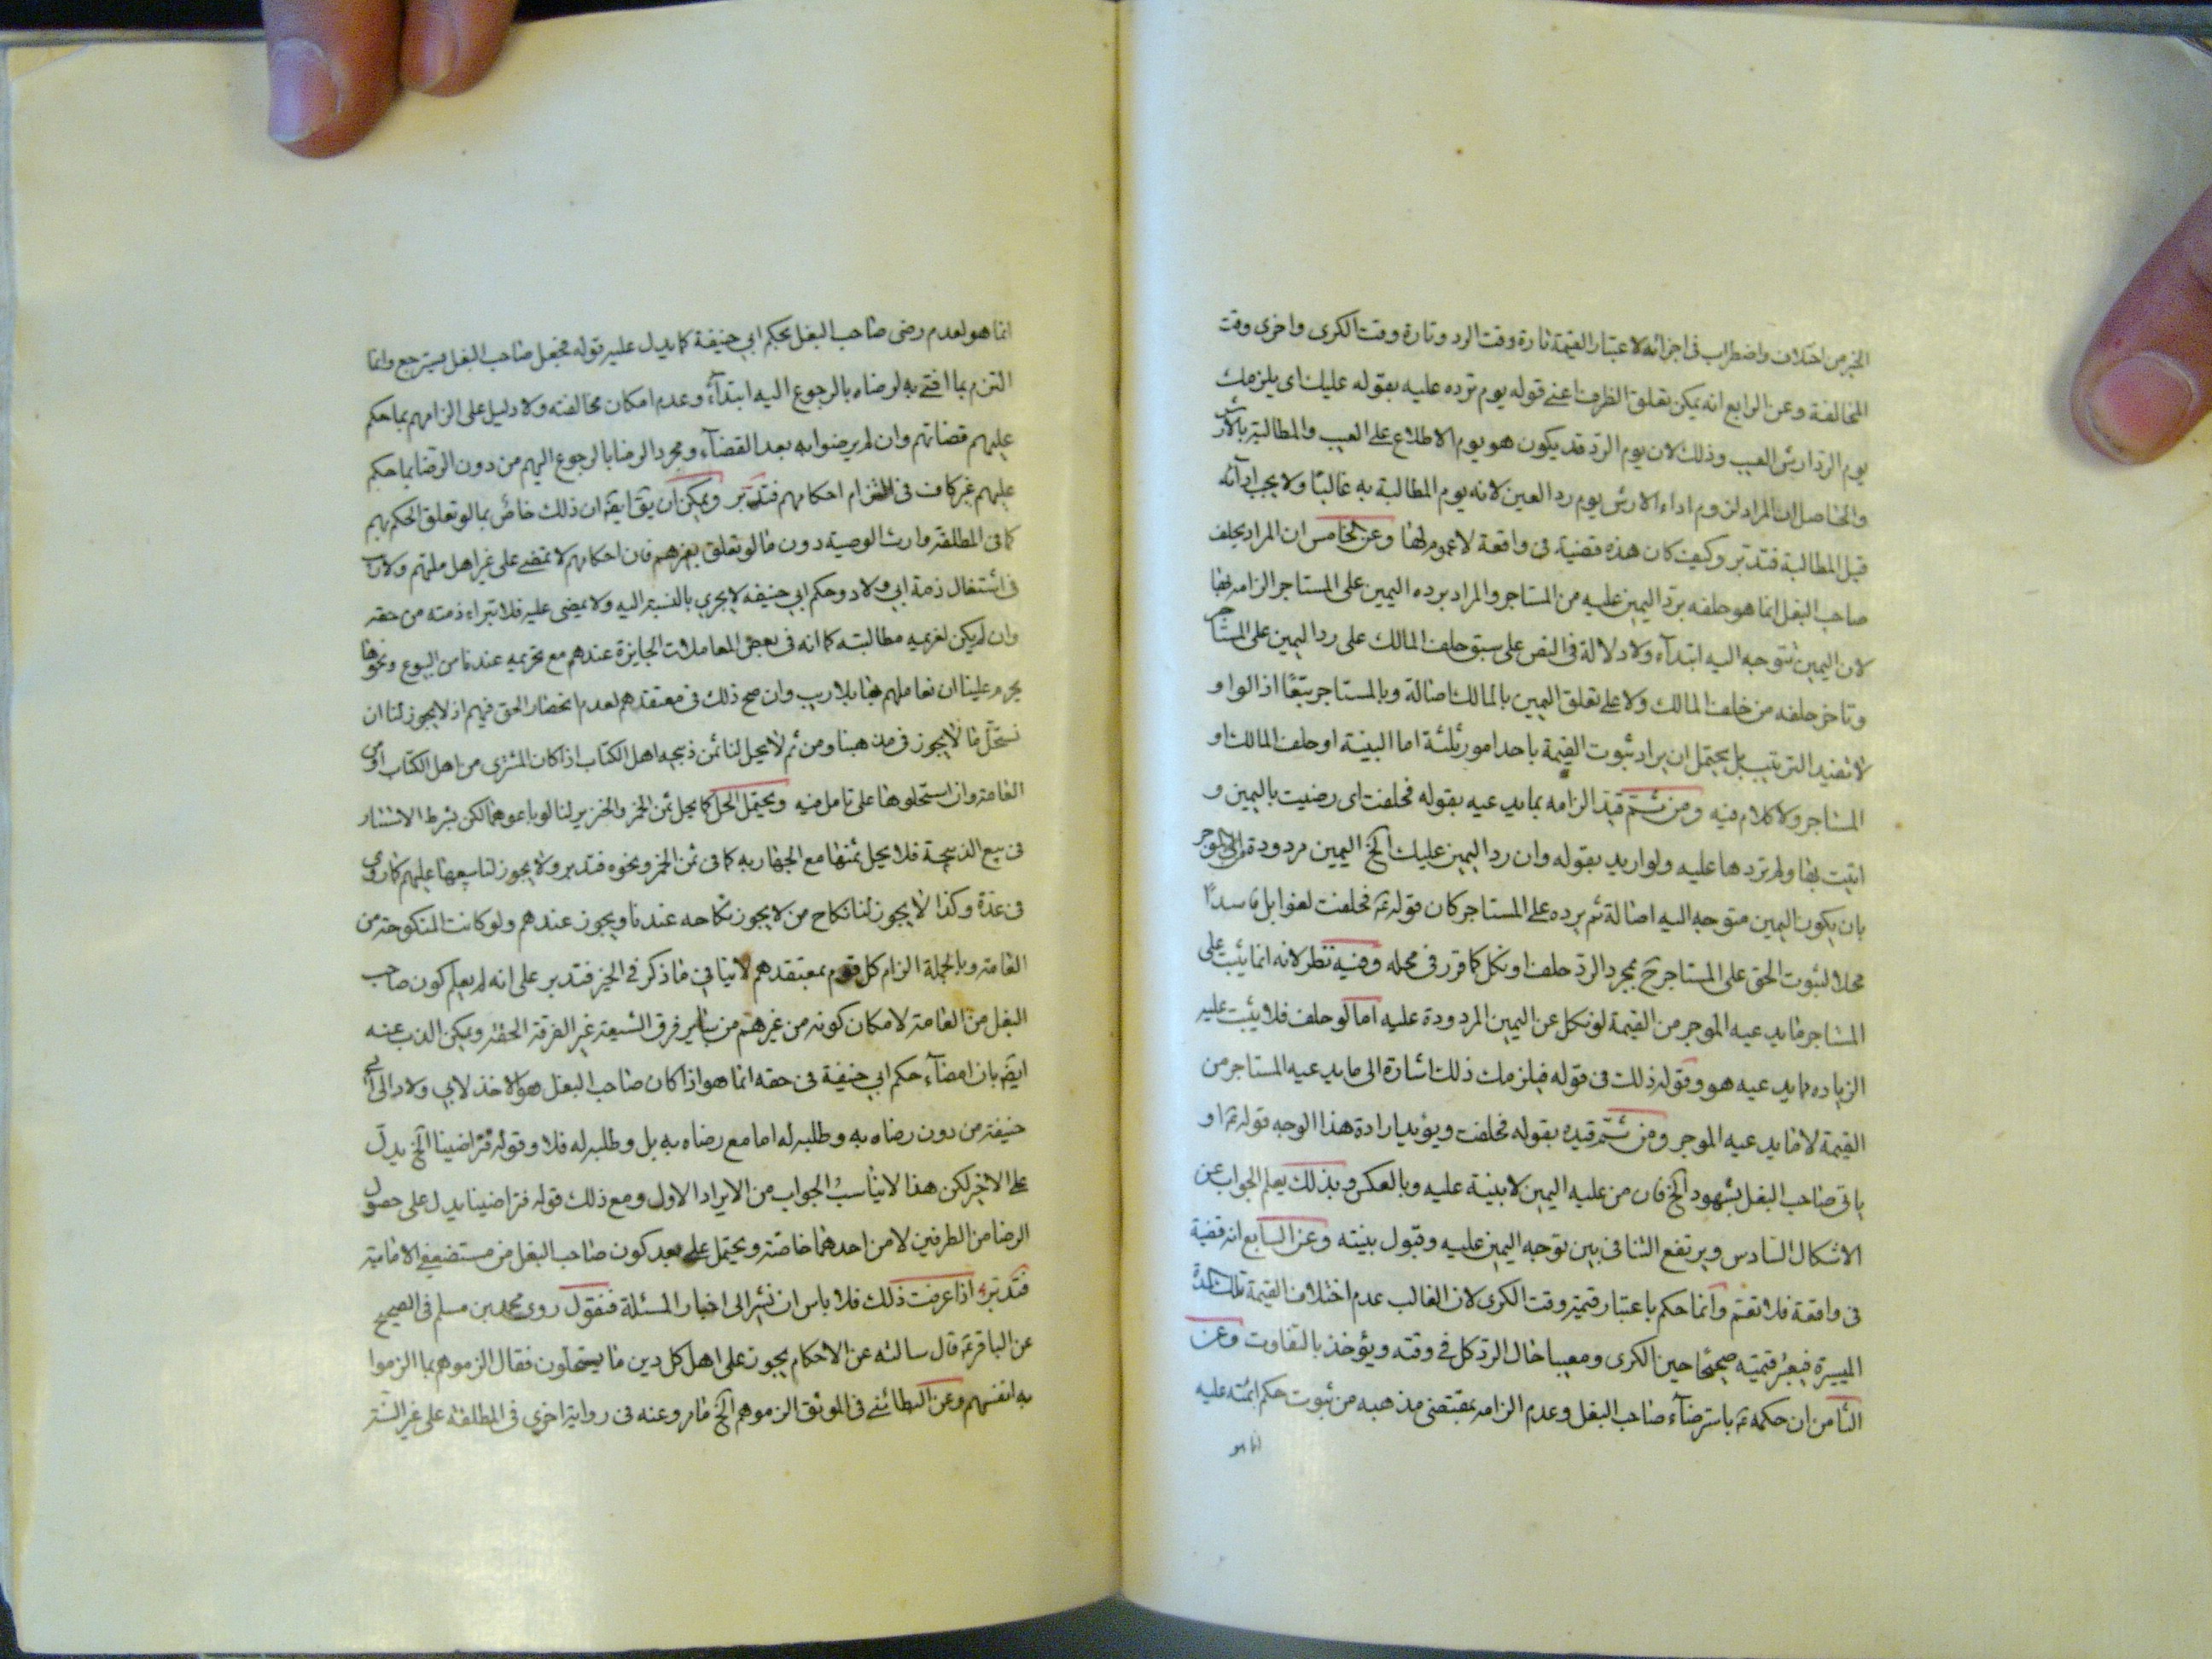 الخبر من اختلاف واضطراب فى اجزائه لاعتبار القيمة تارة وقت الرد وتارة وقت الكرى واخرى وقت
المخالفة وعن الرابع انه يمكن تعلق الظرف اعنى قوله يوم ترده عليه بقوله عليك اى يلزمك
يوم الرد ارش العيب وذلك لان يوم الرد قد يكون هو يوم الاطلاع على العيب والمطالبة بالارش
والحاصل ان المراد لزوم اداء الارش يوم رد العين لانه يوم المطالبة به غالبًا ولا يجب ادائه
قبل المطالبة فتدبر وكيف كان هذه قضية فى واقعة لا عموم لها وعن الخامس ان المراد بحلف
صاحب البغل انما هو حلفه برد اليمين عليه من المستاجر والمراد برده اليمين على المستاجر الزامه بها
لان اليمين تتوجه اليه ابتدآء ولا دلالة فى النص على سبق حلف المالك على رد اليمين على المستاجر
وتاخر حلفه من حلف المالك ولا على تعلق اليمين بالمالك اصالة وبالمستاجر تبعًا اذ الواو
لا تفيد الترتيب بل يحتمل ان يراد ثبوت القيمة باحد امور ثلثة اما البينة او حلف المالك او
المستاجر ولا كلام فيه ومن ثم قيد الزامه بما يدعيه بقوله فحلفت اى رضيت باليمين و
اتيت بها ولم تردها عليه ولو اريد بقوله وان رد اليمين عليك الخ اليمين مردودة من الموجر
بان يكون اليمين متوجه اليه اصالة ثم يرده على المستاجر كان قوله ع فحلفت لغوا بل فاسدًا
محلا لثبوت الحق على المستاجر ح بمجرد الرد حلف او نكل كما قرر فى محله وفيه نظر لانه انما يثبت على
المستاجر ما يدعيه الموجر من القيمة لو نكل عن اليمين المردودة عليه اما لو حلف فلا يثبت عليه
الزياده مما يدعيه هو وقوله ذلك فى قوله فيلزمك ذلك اشارة الى ما يدعيه المستاجر من
القيمة لا ما يدعيه الموجر ومن ثم قيده بقوله فحلفت ويؤيد ارادة هذا الوجه قوله ع او
ياتى صاحب البغل بشهود الخ فان من عليه اليمين لا بينة عليه وبالعكس وبذلك يعلم الجواب عن
الاشكال السادس ويرتفع التنافى بين توجه اليمين عليه وقبول بينته وعن السابع انه قضية
فى واقعة فلا تعم وانما حكم باعتبار قيمته وقت الكرى لان الغالب عدم اختلاف القيمة تلك المدة
اليسيرة فيعتبر قيمته صحيحًا حين الكرى ومعيبا حال الرد كل فى وقته ويؤخذ بالتفاوت وعن
الثامن ان حكمه ع باسترضآء صاحب البغل وعدم الزامه بمقتضى مذهبه من ثبوت حكم ائمته عليه
انما هو
انما هو لعدم رضى صاحب البغل بحكم ابي حنيفة كما يدل عليه قوله فجعل صاحب البغل يسترجع وانما
التزم بما افتى به لرضاه بالرجوع اليه ابتدآءً وعدم امكان مخالفته ولا دليل على الزامهم بما حكم
عليهم قضاتهم وان لم يرضوا به بعد القضآء ومجرد الرضا بالرجوع اليهم من دون الرضا بما حكم
عليهم غير كاف فى التزام احكامهم فتدبر ويمكن ان يق ايضا ان ذلك خاص بما لو تعلق الحكم بهم
كما فى المطلقة وارث الوصية دون ما لو تعلق بغيرهم فان احكامهم لا تمضى على غير اهل ملتهم ولا ريب
فى اشتغال ذمة ابي ولاد وحكم ابي حنيفة لا يجري بالنسبة اليه ولا يمضى عليه فلا تبراء ذمته من حقه
وان لم يكن لغريمه مطالبته كما انه فى بعض المعاملات الجايزة عندهم مع تحريمه عندنا من البيوع ونحوها
يحرم علينا ان نعاملهم بها بلا ريب وان صح ذلك فى معتقدهم لعدم انحصار الحق فيهم اذ لا يجوز لنا ان
نستحل ما لا يجوز فى مذهبنا ومن ثم لا يحل لنا ثمن ذبيحه اهل الكتاب اذا كان المشترى من اهل الكتاب او من
العامة وان استحلوها على تامل فيه ويحتمل الحل كما يحل ثمن الخمر والخنزير لنا لو باعوهما لكن بشرط الاستتار
فى بيع الذبيحة فلا يحل ثمنها مع الجهار به كما فى ثمن الخمر ونحوه فتدبر ولا يجوز لنا بيعها عليهم كما روى
فى عدة وكذا لا يجوز لنا نكاح من لا يجوز نكاحه عندنا ويجوز عندهم ولو كانت المنكوحة من
العامة وبالجملة الزام كل قوم بمعتقدهم لا ينافي ما ذكر فى الخبر فتدبر على انه لم يعلم كون صاحب
البغل من العامة لامكان كونه من غيرهم من ساير فرق الشيعة غير الفرقة الحقة ويمكن الذب عنه
ايضا بان امضآء حكم ابي حنيفة فى حقه انما هو اذا كان صاحب البغل هو الاخذ لابي ولاد الى ابي
حنيفة من دون رضاه به وطلبه له اما مع رضاه به بل وطلبه له فلا وقوله فتراضينا الخ يدل
على الاخير لكن هذا لا يناسب الجواب من الايراد الاول ومع ذلك قوله فتراضينا يدل على حصول
الرضا من الطرفين لا من احدهما خاصة ويحتمل على بعد كون صاحب البغل من مستضعفى الامامية
فتدبر اذا عرفت ذلك فلا باس ان نشير الى اخبار المسئلة فنقول روى محمد بن مسلم فى الصحيح
عن الباقر ع قال سالته عن الاحكام يجوز على اهل كل دين ما يستحلون فقال الزموهم بما الزموا
به انفسهم وعن البطائنى فى الموثق الزموهم الخ مامر وعنه فى رواية اخرى فى المطلقة على غير السنة